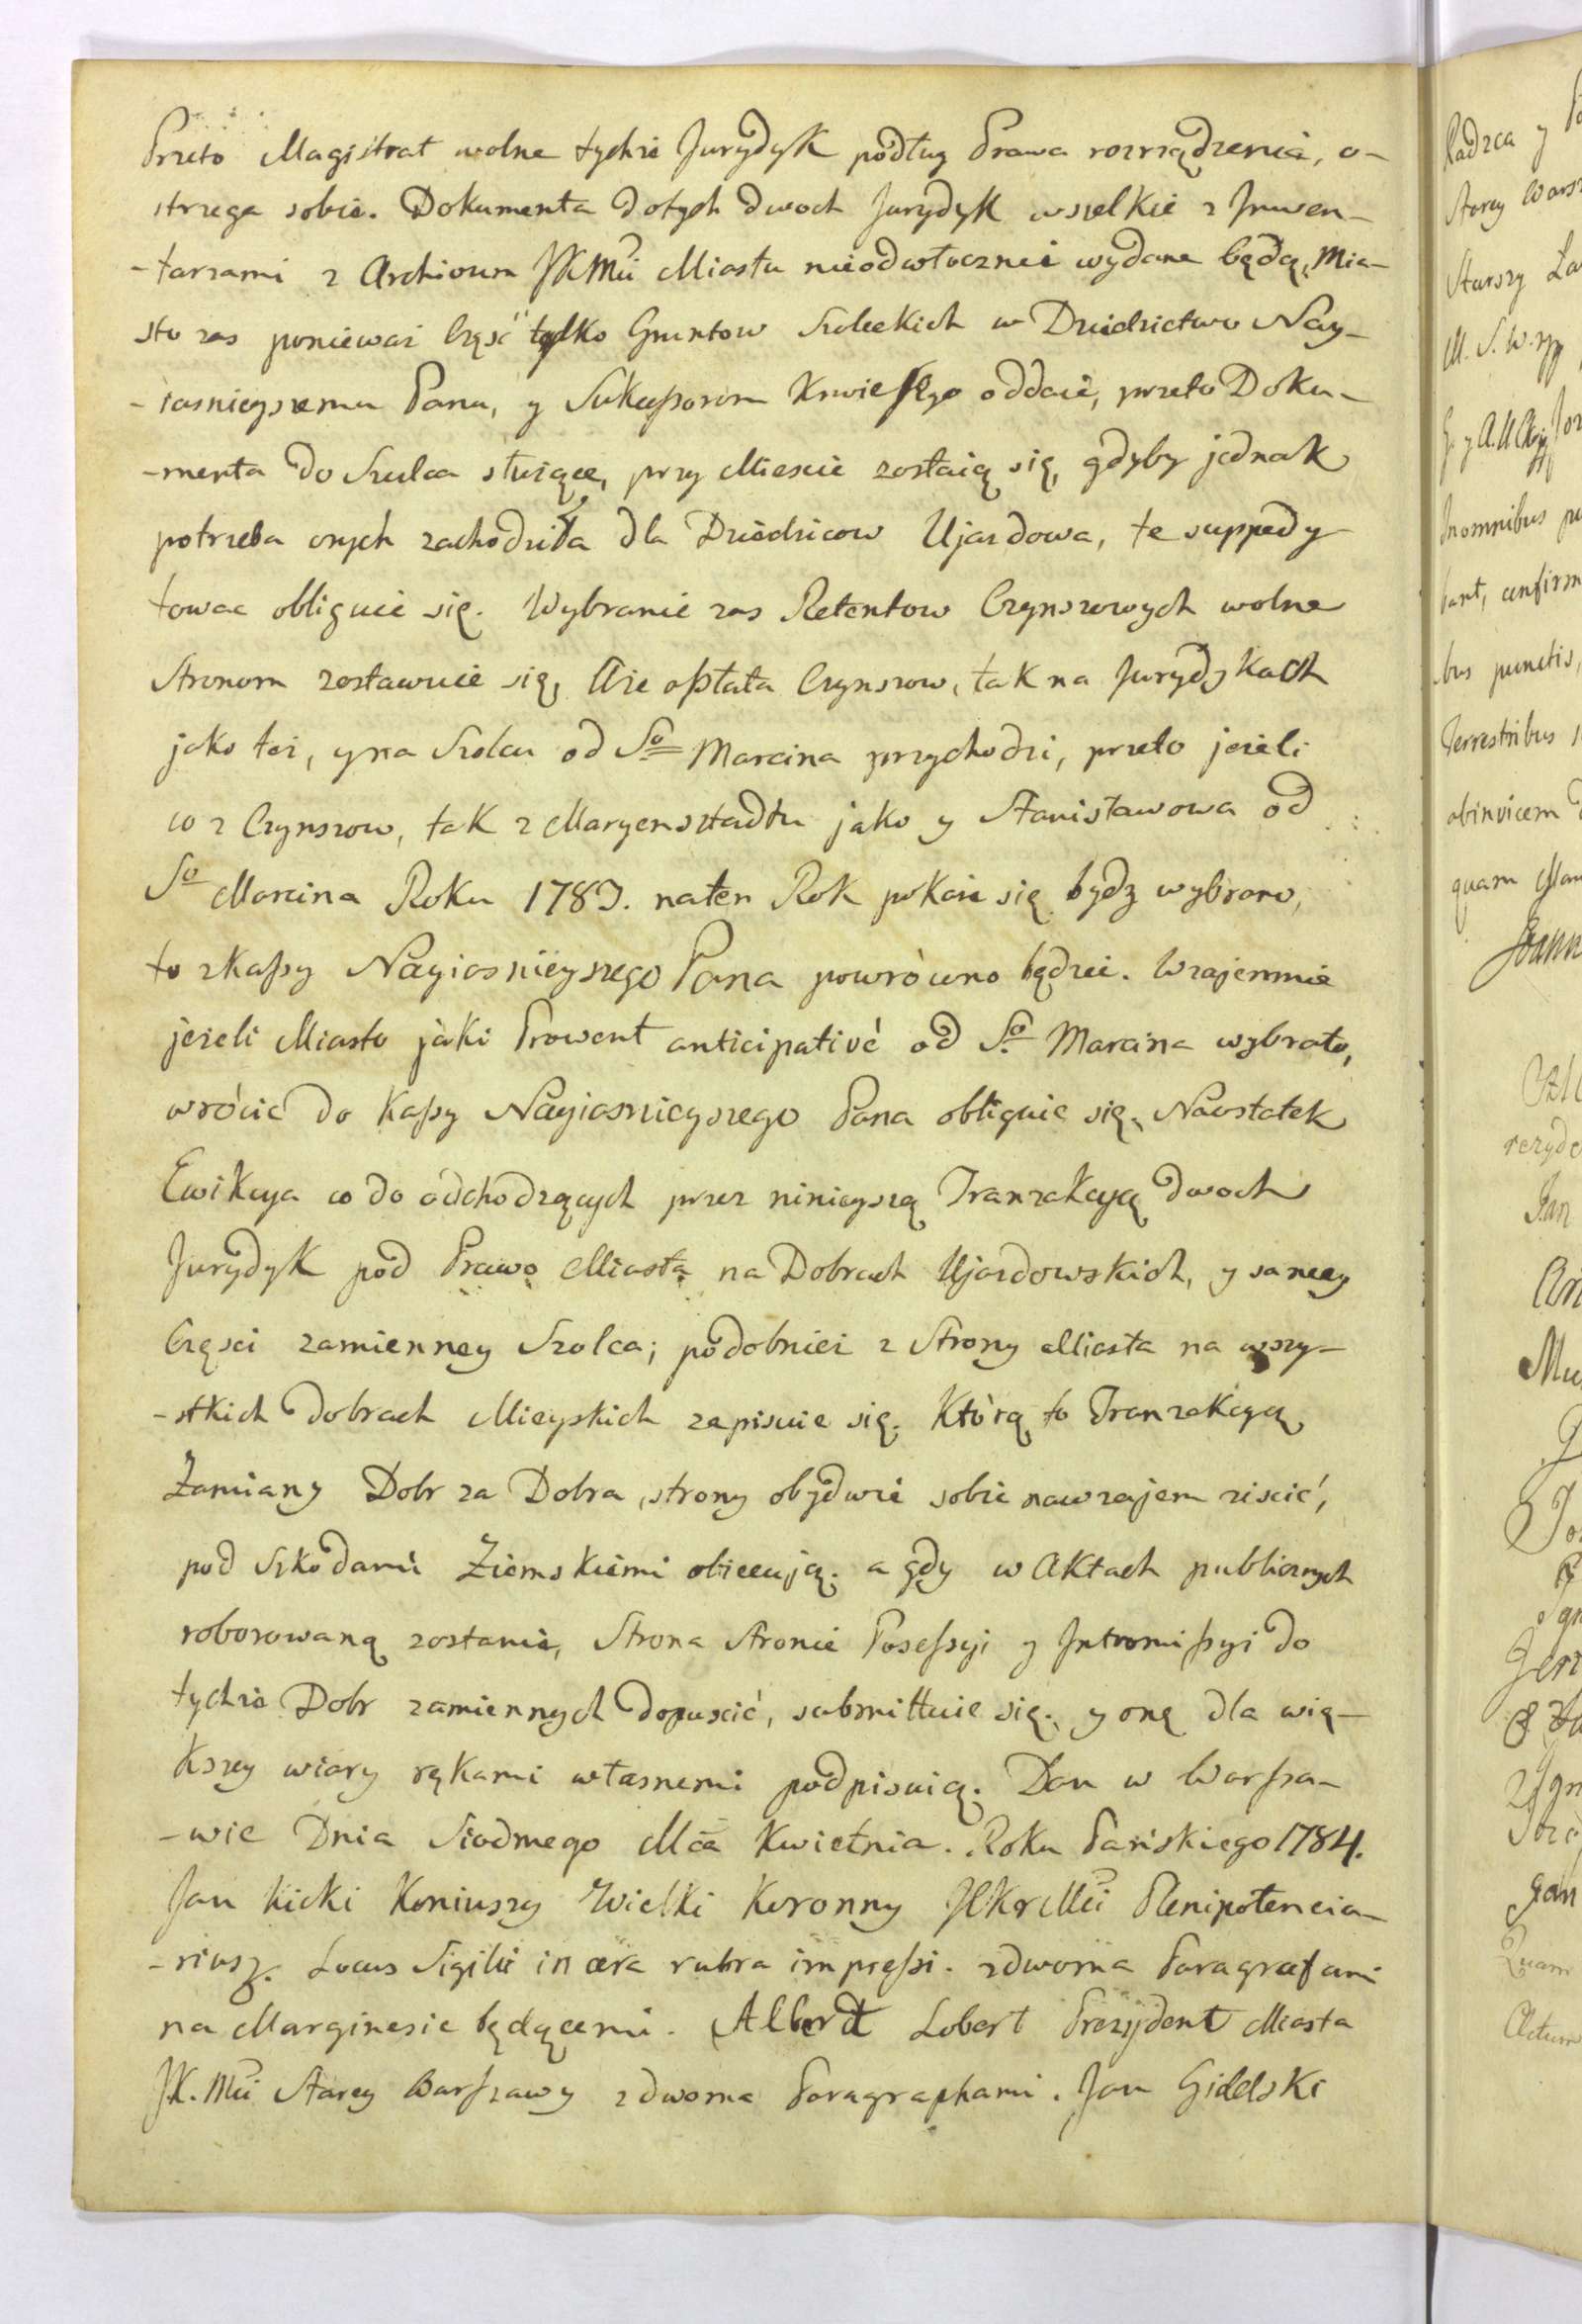 Przeto Magistrat wolne tychże Jurydyk podług Prawa rozrządzenia, o-
strzega sobie. Dokumenta dotych dwoch Jurydyk wszelkie z Jnwen-
-tarzami z Archivum JKMci Miastu nieodwłocznie wydane będą, Mia-
sto zas poniewaz Część tylko Gruntow Szoleckich w Dziedzictwo Nay-
-iasnieyszemu Panu, y Sukceßorom Krwie Jego oddaie, przeto Doku-
-menta do Szolca służące, przy Miescie zostaią się, gdyby jednak
potrzeba onych zachodziła dla Dziedzicow Ujazdowa, te suppedy
towac obliguie się. Wybranie zas Retentow Czynszowych wolne
Stronom zostawuie się, Aże opłata Czynszow, tak na Jurydykach
jako tez, y na Szolcu od So Marcina przychodzi, przeto jeżeli
co z Czynszow, tak z Maryensztadtu jako y Stanisławowa od
So Marcina Roku 1783. naten Rok pokaże się bydz wybrano,
to zkaßy Nayiasnieyszego Pana powrócono będzie. Wzajemnie
jeżeli Miasto jaki Prowent anticipativé od So Marcina wybrało,
wrócić do Kaßy Nayiasnieyszego Pana obliguie się, Naostatek
Ewikcya co do odchodzących przez ninieyszą Tranzakcyą dwoch
Jurydyk pod Prawo Miasta na Dobrach Ujazdowskich, y samey
Częsci zamienney Szolca; podobnież z Strony Miasta na wszy-
-stkich Dobrach Mieyskich zapisuie się. Którą to Tranzakcyą
Zamiany Dobr za Dobra, strony obydwie sobie nawzajem ziscić,
pod Szkodami Ziemskiemi obiecują. a gdy w Aktach publicznych
roborowaną zostanie, Strona Stronie Poseßyi y Jntromißyi do
tychże Dobr zamiennych dopuscić, submittuie się. y onę dla wię-
kszey wiary rękami własnemi podpisuią. Dan w Warßa-
-wie Dnia Siodmego Mca Kwietnia. Roku Pańskiego 1784.
Jan Kicki Koniuszy Wielki Koronny JKrMci Plenipotencia-
-riusz. Locus Sigilli in cera rubra impreßi. zdwoma Paragrafami
na Marginesie będącemi. Albert Lobert Prezydent Miasta
JK. Mci Starey Warszawy zdwoma Paragraphami. Jan Gidelski
Radzca y
Starey Wars
Starszy
M. S. W.
Jnomnibus
bant, confirm
bus punctis,
Terrestribus
abinvicem
quam
Joann
rezyde
Jan
gan
Quam
Actum